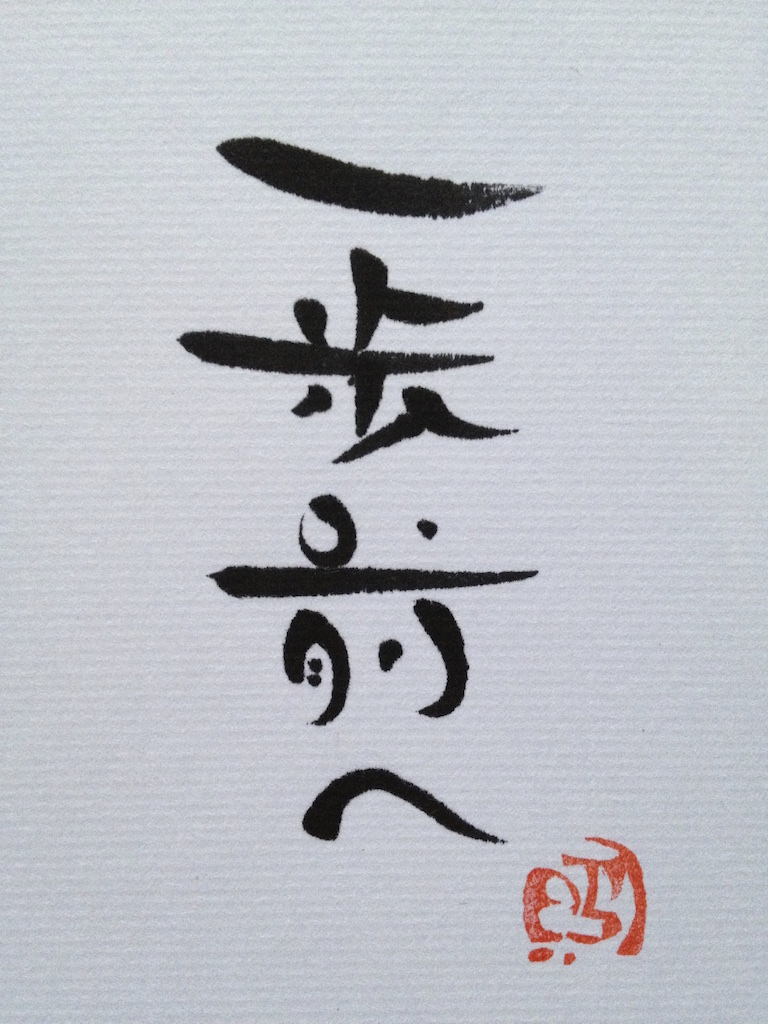 一歩前へ